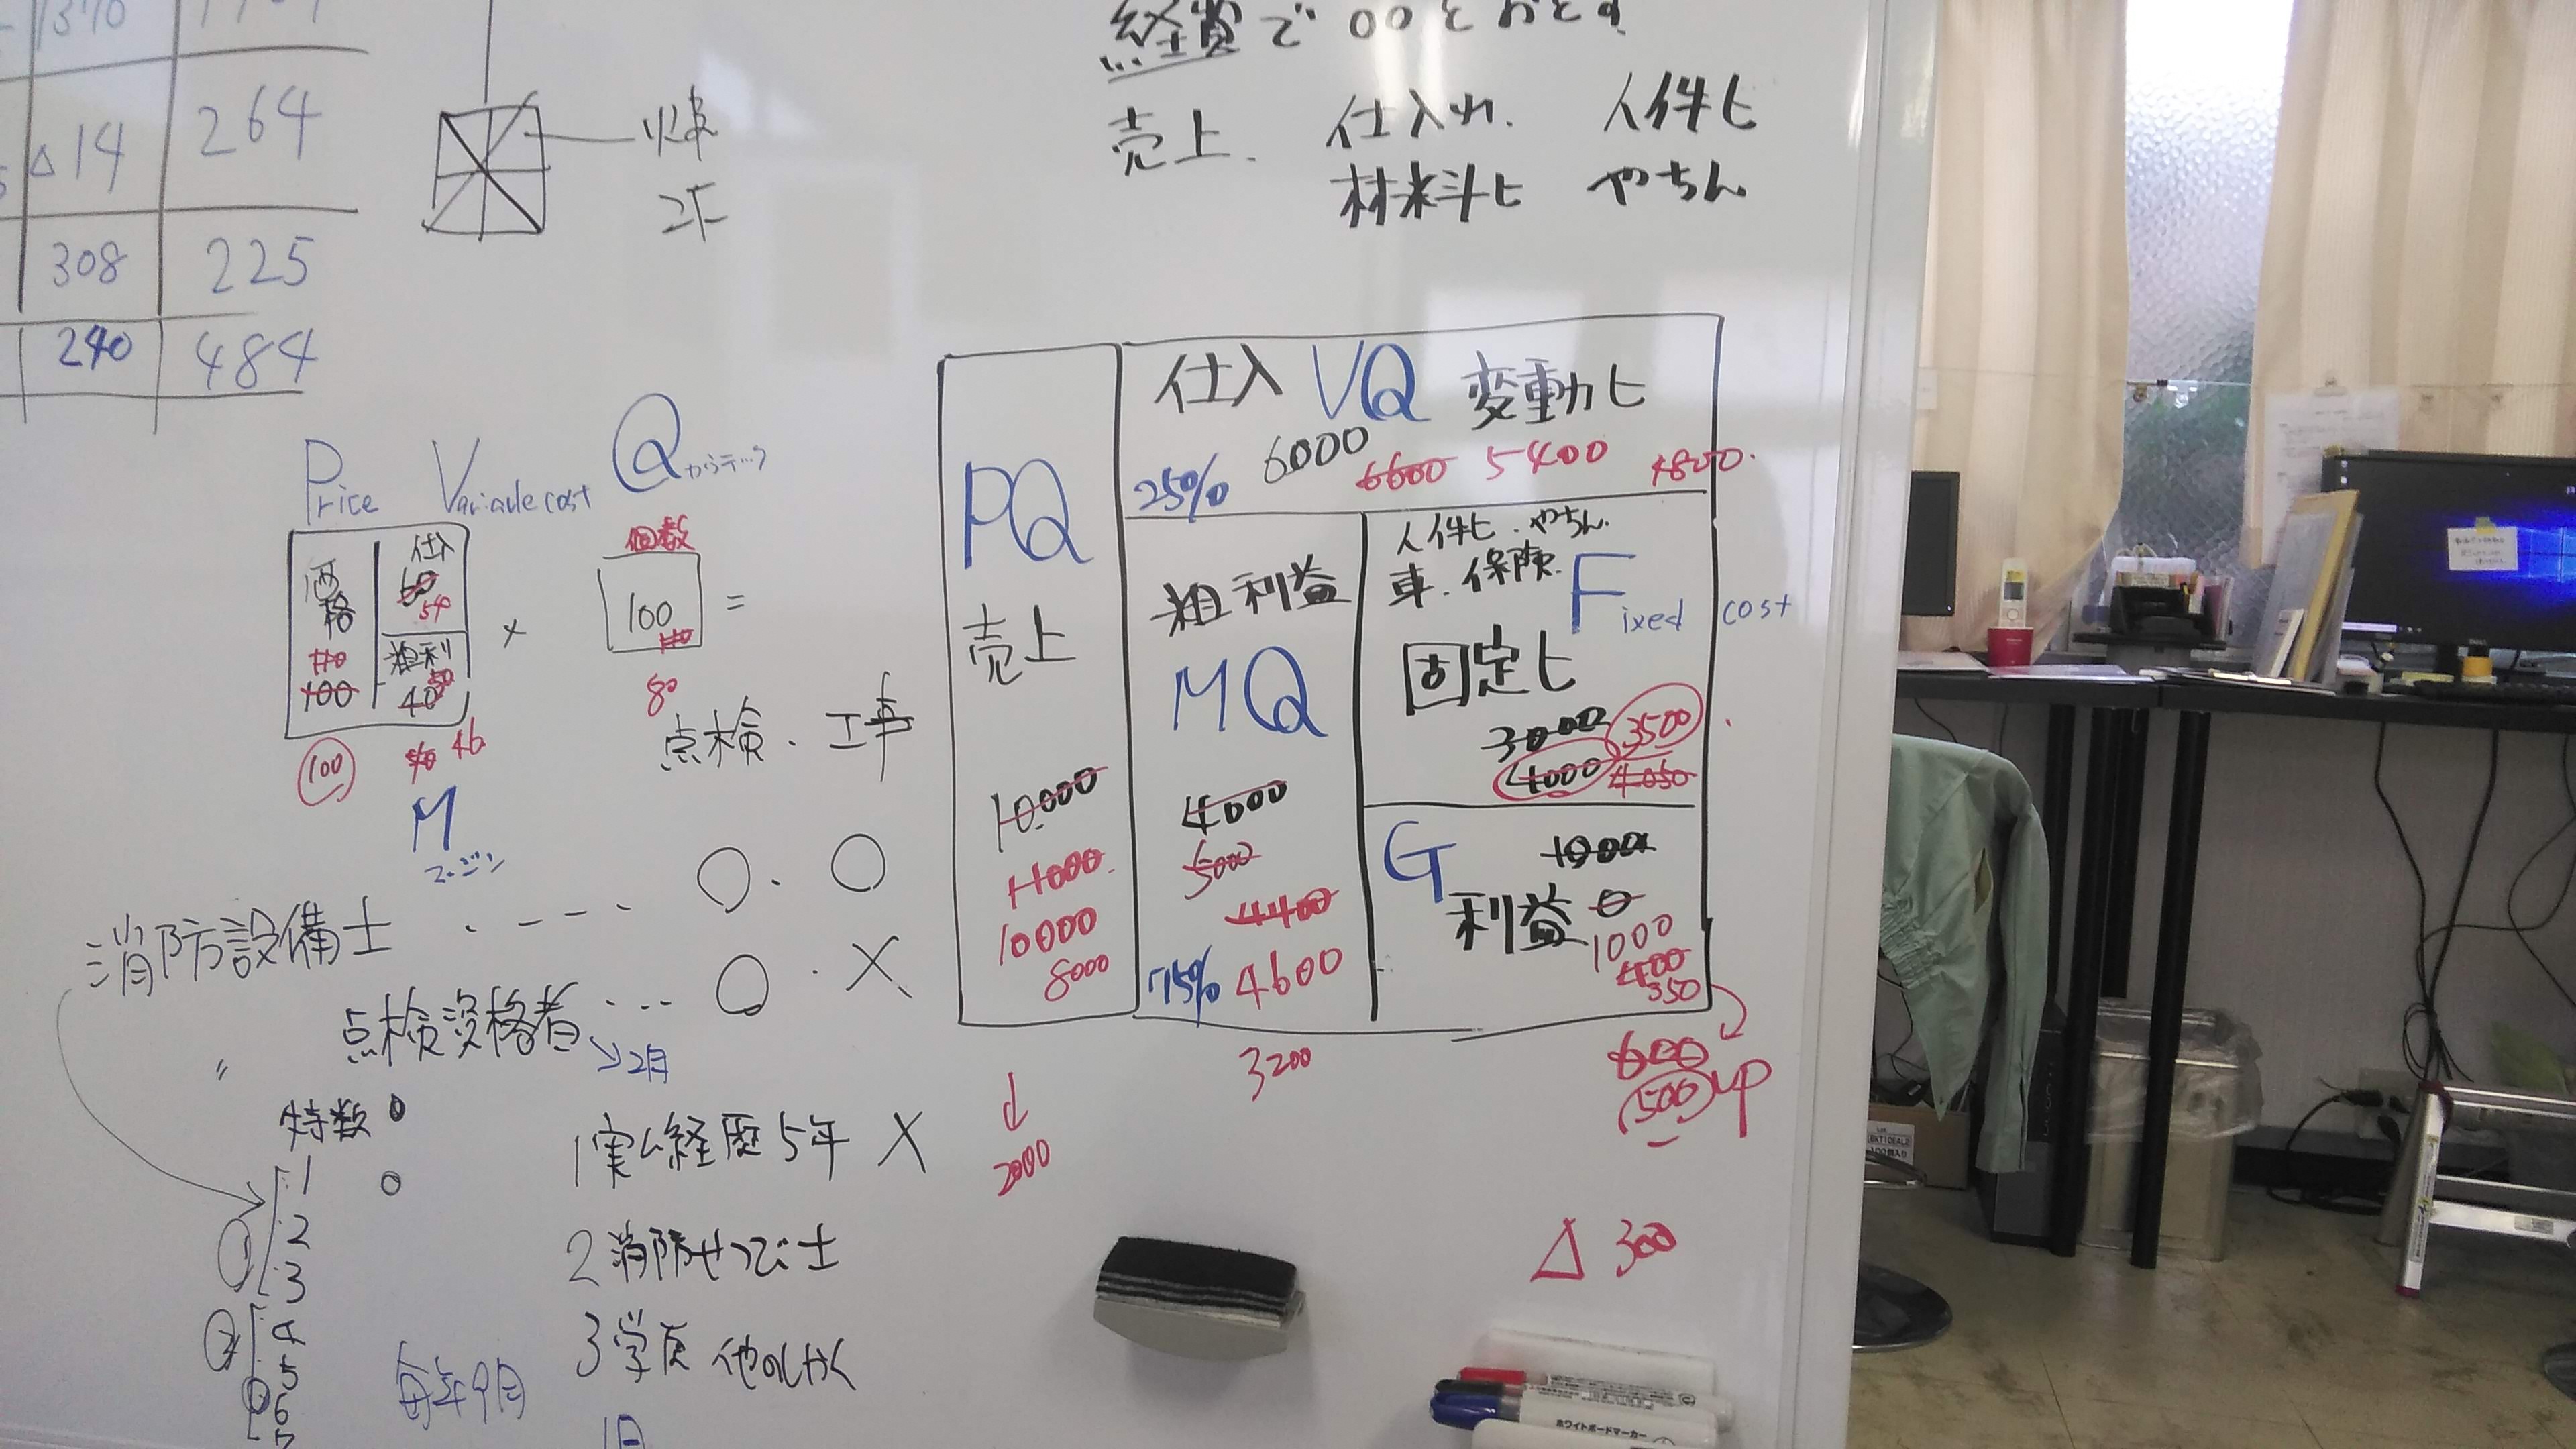 経費で〇〇をおとす
売上. 仕入れ. 人件ヒ
材料斗ヒ やちん
1370
△14 264
308 225
240 484
2F
Price Variavle cost Q
価格 仕入
60
54
110 粗利 50
100 40
100 46
M
マージン
×
個数
100
110
=
80
点検・工事
〇・〇
〇・×
消防設備士
点検資格者
→2月
〃
特数
1
2
3
4
5
6
7
①
②
毎年9月
1 実ム経歴5年 ×
2 消防せつび士
3 学
PQ
売上
10000
11000
10000
8000
↓
2000
仕入 VQ 変動ヒ
25% 6000 6600 5400 4800
粗利益
MQ
4000
5000
4400
75% 4600
3200
人件ヒ・やちん
車・保険
Fixed cost
固定ヒ
3000 3500
4000 4050
G 利益
1000
0
1000
400
550
600
500 up
△ 300
ホワイトボードマーカー